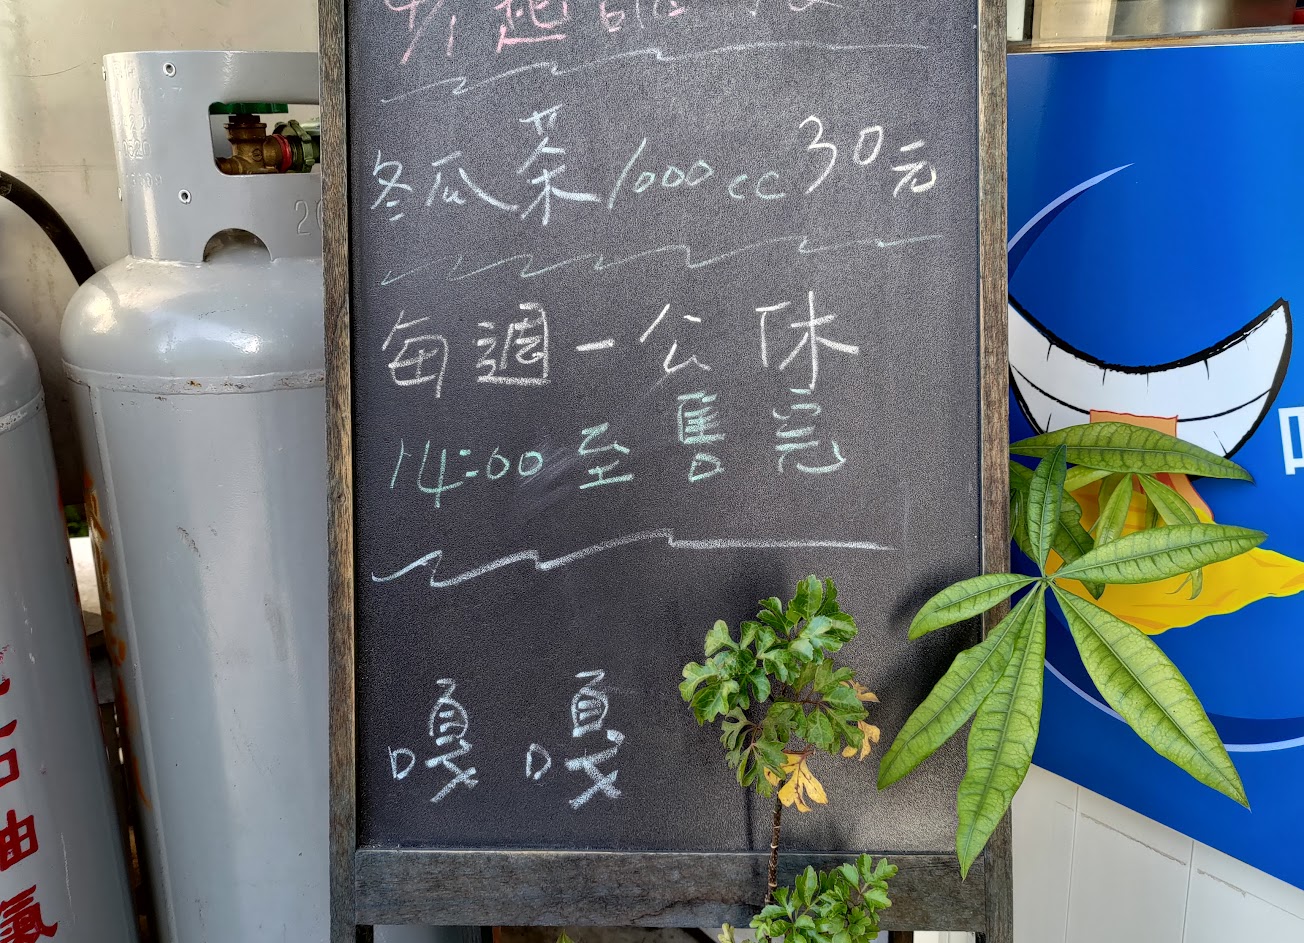 冬瓜茶/1000cc 30元
每週一公休
14:00至售完
嘎 嘎
石油氣